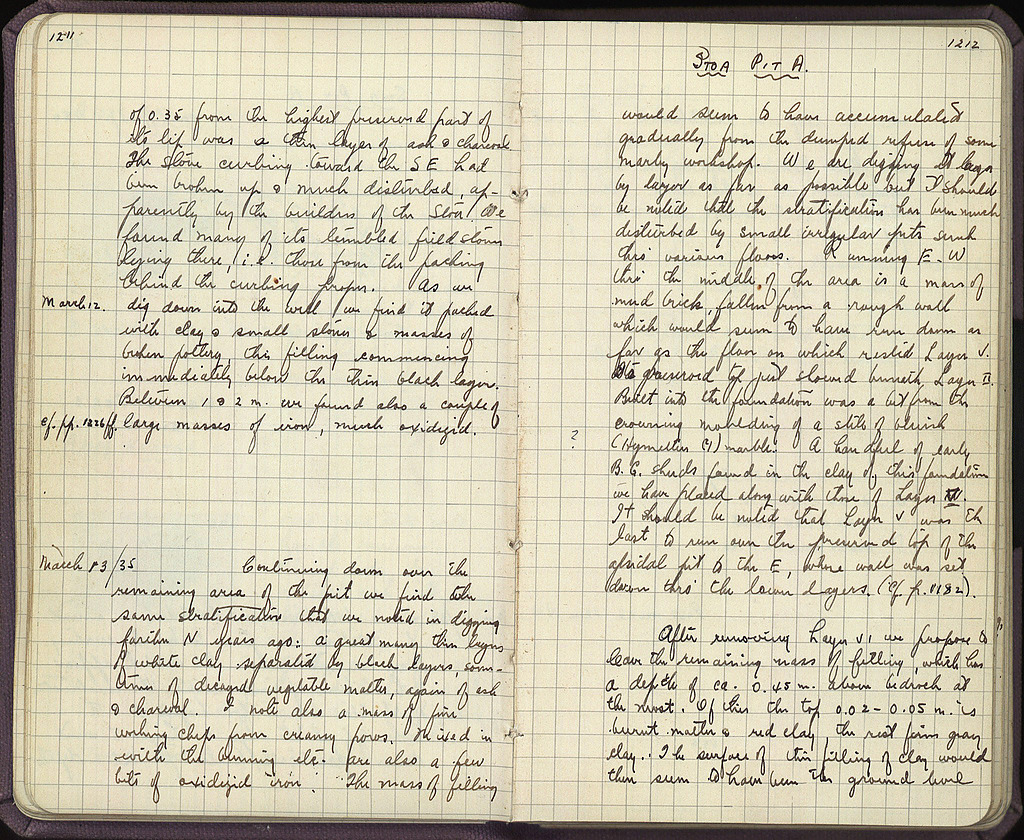 1211
of 0.35 from the highest preserved part of
its lip was a thin layer of ash & charcoal.
The stone curbing toward the SE had
been broken up & much disturbed ap-
parently by the builders of the Stoa. We
found many of its tumbled field stones
lying there, i.e. those from the packing
behind the curbing proper. As we
March 12. dig down into the well we find it packed
with clay & small stones & masses of
broken pottery, this filling commencing
immediately below the thin black layer.
Between 1 & 2 m. we found also a couple of
cf. pp. 1226 ff. large masses of iron, much oxidized.
March 13/35 Continuing down over the
remaining area of the pit we find the
same stratification that we noted in digging
farther N years ago: a great many thin layers
of white clay separated by black layers, some-
times of decayed vegetable matter, again of ash
& charcoal. I note also a mass of fine
working chips from creamy poros. Mixed in
with the burning etc. are also a few
bits of oxidized iron. The mass of filling
1212
STOA PIT A.
would seem to have accumulated
gradually from the dumped refuse of some
nearby workshop. We are digging it layer
by layer as far as possible but it should
be noted that the stratification has been much
disturbed by small irregular pits sunk
thro various floors. Running E-W
thro the middle of the area is a mass of
mud brick, fallen from a rough wall
which would seem to have run down as
far as the floor on which rested Layer V.
Its preserved top just showed beneath Layer II.
Built into the foundation was a bit from the
crowning moulding of a stele of bluish
? (Hymettian (?)) marble. A handful of early
B.C. sherds found in the clay of this foundation
we have placed along with those of Layer IV.
It should be noted that Layer V was the
last to run over the preserved top of the
apsidal pit to the E, whose wall was set
down thro the lower layers. (cf. p. 1182).
After removing Layer VI we propose to
leave the remaining mass of filling which has
a depth of ca. 0.45 m. above bedrock at
the most. Of this the top 0.02-0.05 m. is
burnt matter & red clay the rest firm gray
clay. The surface of this filling of clay would
then seem to have been the ground level